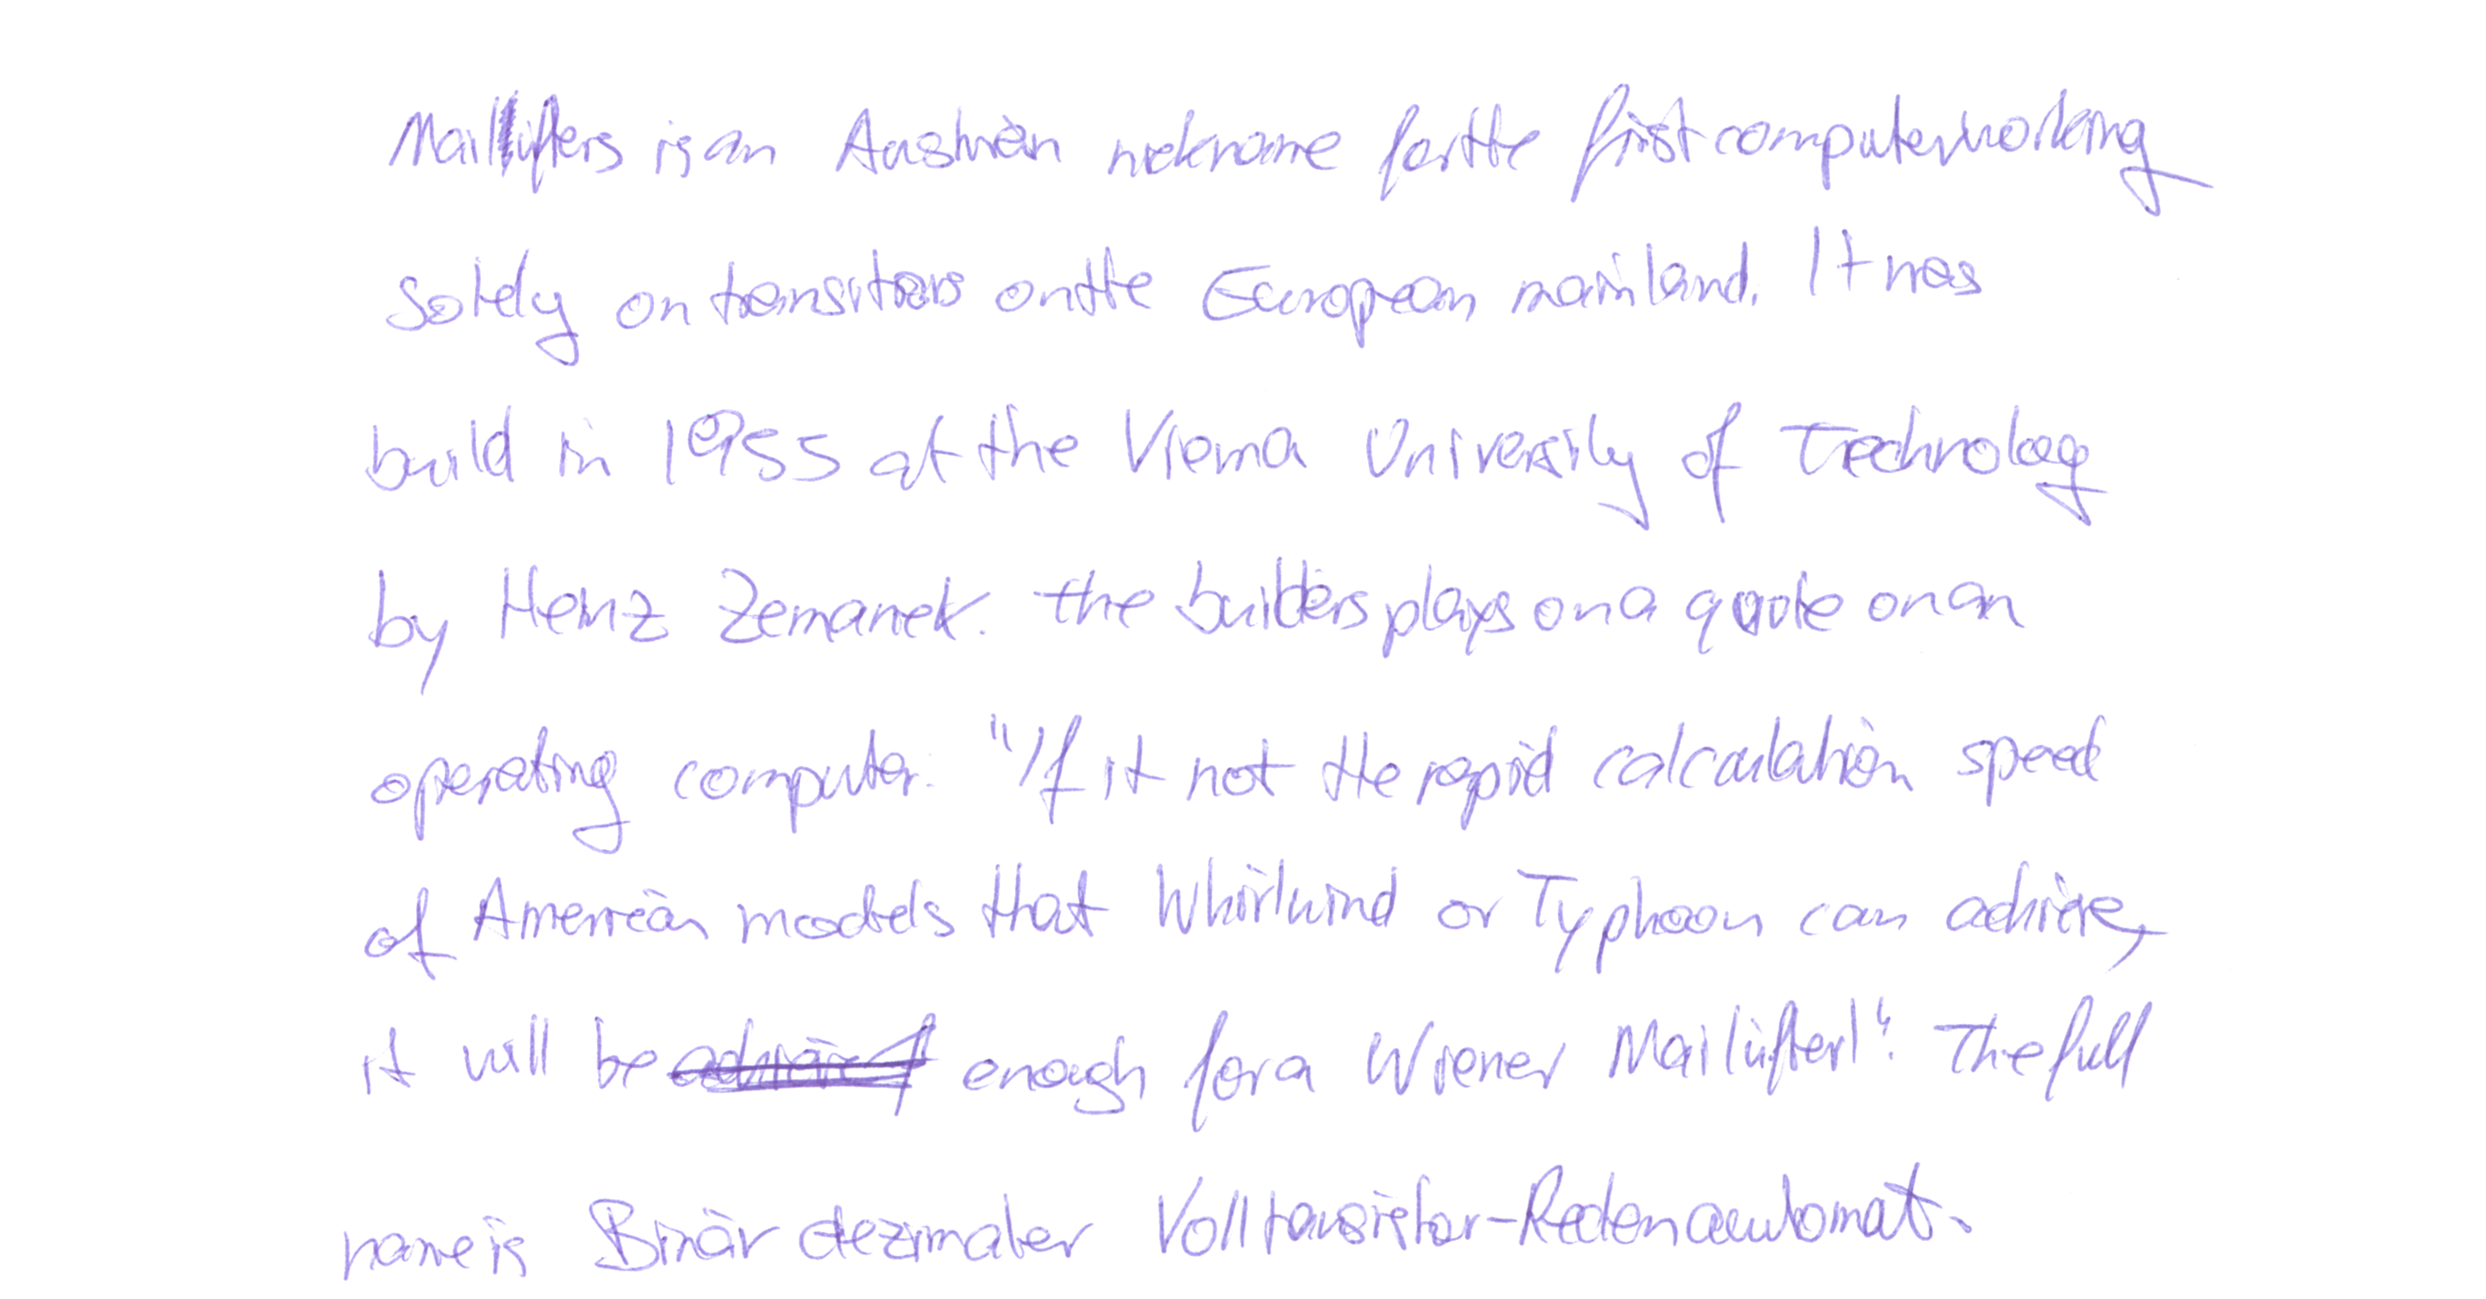 Mailüfters is an Austrian nickname for the first computer working
solely on transitors on the European mainland. It was
build in 1955 at the Vienna University of Technology
by Heinz Zemanek. the builders plays on a quote on an
operating computer. "If it not the rapid calculation speed
of American models that Whirlwind or Typhoon can achieve,
it will be enough for a Wiener Mailüfterl". The full
name is Binär dezimaler Volltransistor-Rechenautomat.